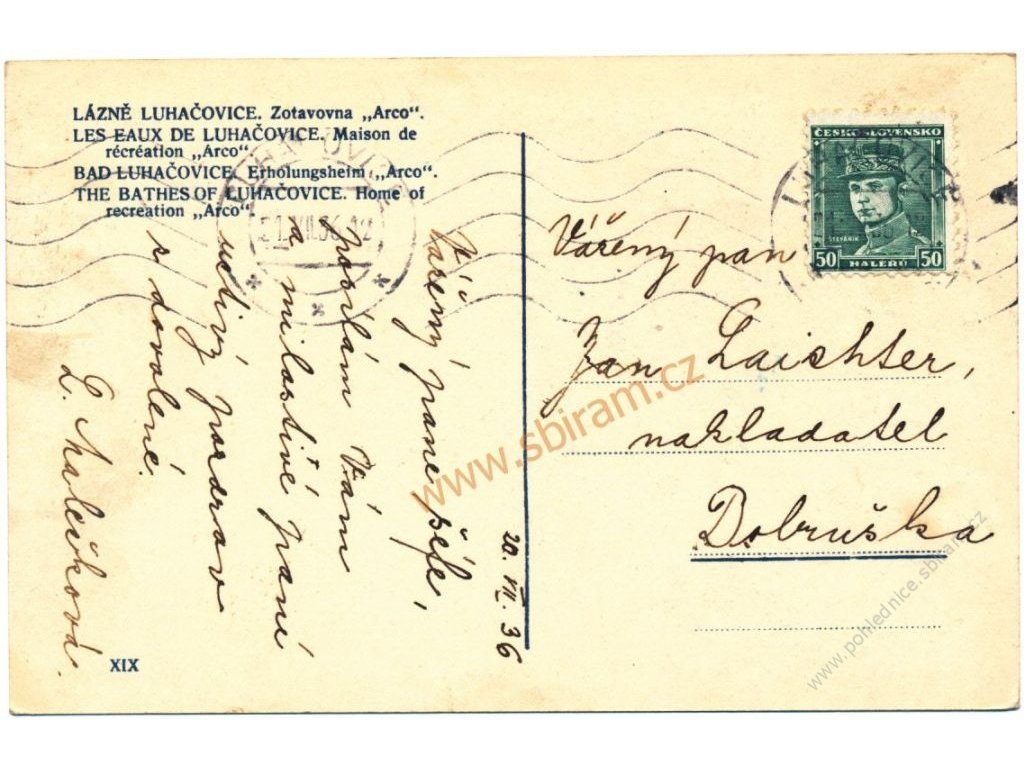 LÁZNĚ LUHAČOVICE. Zotavovna „Arco“.
LES EAUX DE LUHAČOVICE. Maison de
récréation „Arco“
BAD LUHAČOVICE. Erholungsheim „Arco“.
THE BATHES OF LUHAČOVICE. Home of
recreation „Arco“.
20. VII. 36
Vážený pane šéfe,
posílám Vám
a milostivé paní
uctivý pozdrav
z dovolené.
L. Malečková.
XIX
ČESKOSLOVENSKO
ŠTEFÁNIK
50 HALÉŘŮ 50
Vážený pan
Jan Laichter,
nakladatel
Dobruška
www.sbiram.cz
www.pohlednice.sbiram.cz